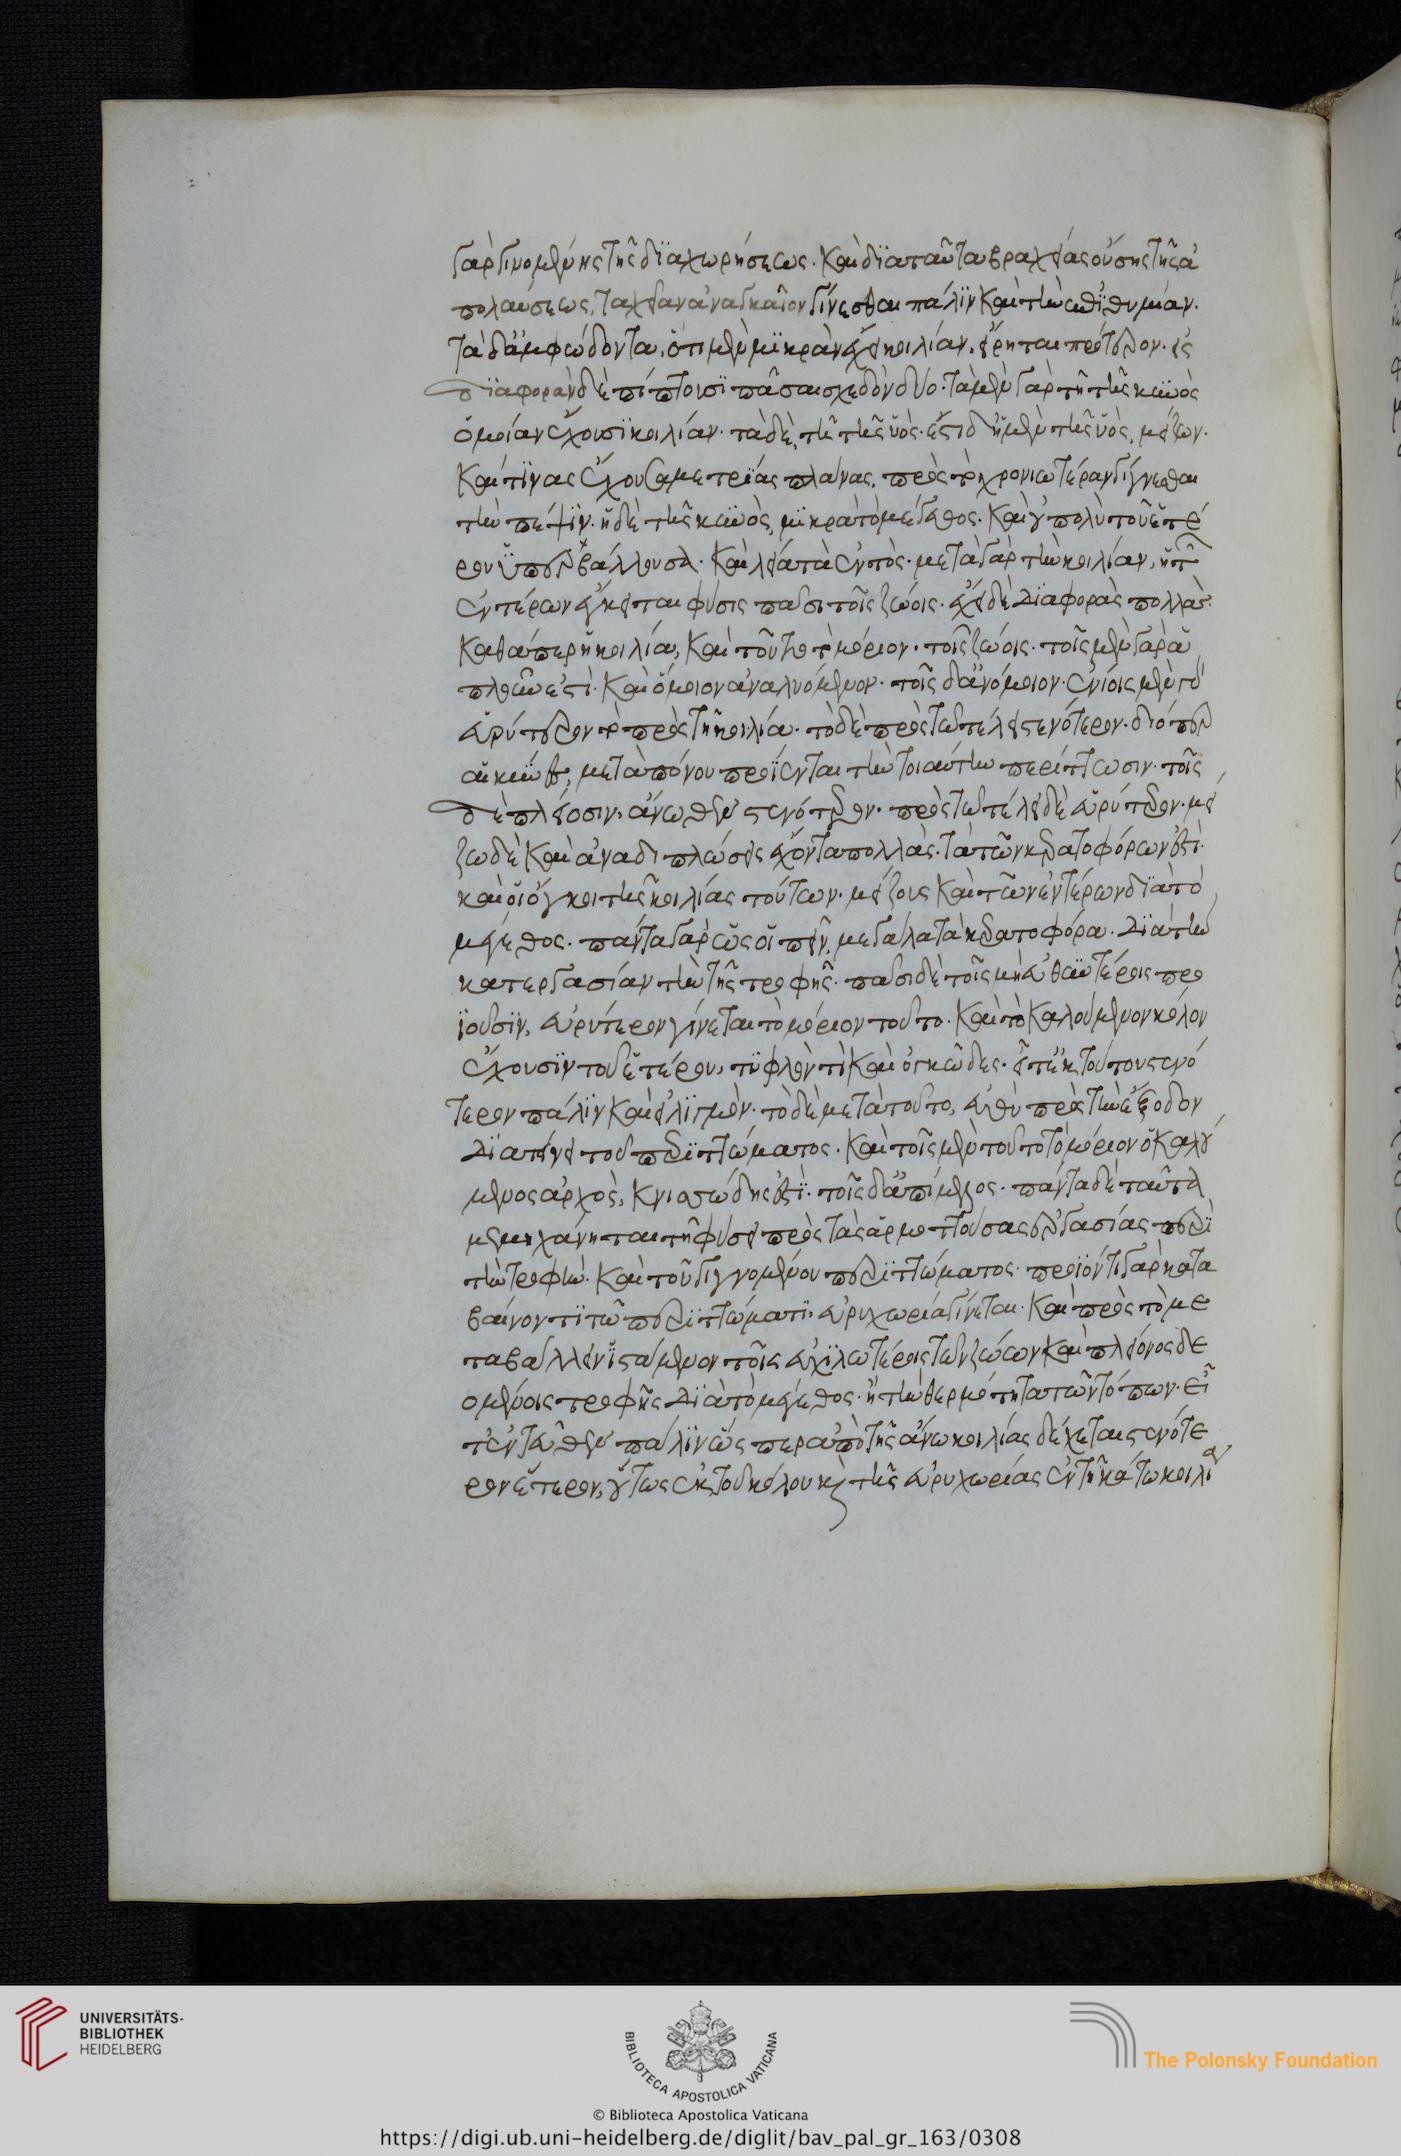 γὰρ γινομένης τῆς διαχωρήσεως. καὶ διὰ ταῦτα βραχείας οὔσης τῆς ἀ
πολαύσεως, ταχεῖαν ἀναγκαῖον γίνεσθαι πάλιν καὶ τὴν ἐπιθυμίαν.
τὰ δ' ἀμφώδοντα, ὅτι μὲν μικρὰν ἔχει κοιλίαν, εἴρηται πρότερον. εἰς
διαφορὰν δὲ πίπτουσι πᾶσαι σχεδὸν δύο. τὰ μὲν γὰρ τῇ τῆς κυνὸς
ὁμοίαν ἔχουσι κοιλίαν. τὰ δὲ, τῇ τῆς ὑός. ἔστι δ' ἡ μὲν τῆς ὑὸς, μείζων.
καί τινας ἔχουσα μετρίας πλάκας, πρὸς τὸ χρονιωτέραν γίγνεσθαι
τὴν πέψιν. ἡ δὲ τῆς κυνὸς, μικρὰ τὸ μέγεθος. καὶ οὐ πολὺ τοῦ ἐντέ
ρου ὑπερβάλλουσα. καὶ λεία τὰ ἐντὸς. μετὰ γὰρ τὴν κοιλίαν, ἡ τῶν
ἐντέρων ἔγκειται φύσις πᾶσι τοῖς ζώοις. ἔχει δὲ διαφορὰς πολλὰς.
καθάπερ ἡ κοιλία, καὶ τοῦτο τὸ μόριον. τοῖς ζώοις. τοῖς μὲν γὰρ ἁ
πλοῦν ἐστὶ. καὶ ὅμοιον ἀναλυόμενον. τοῖς δ' ἀνόμοιον. ἐνίοις μὲν γὰρ
εὐρύτερον τὸ πρὸς τῇ κοιλίᾳ. τὸ δὲ πρὸς τῷ τέλει στενότερον. διόπερ
αἱ κύνες, μετὰ πόνου προΐενται τὴν τοιαύτην περίττωσιν. τοῖς
δὲ πλείοσιν. ἄνωθεν στενότερον. πρὸς τῷ τέλει δὲ εὐρύτερον. μεί
ζω δὲ καὶ ἀναδιπλώσεις ἔχοντα πολλὰς. τὰ τῶν κερατοφόρων ἐστὶ.
καὶ οἱ ὄγκοι τῆς κοιλίας τούτων. μείζους καὶ τῶν ἐντέρων διὰ τὸ
μέγεθος. πάντα γὰρ ὡς εἰπεῖν, μεγάλα τὰ κερατοφόρα. διὰ τὴν
κατεργασίαν τὴν τῆς τροφῆς. πᾶσι δὲ τοῖς μὴ εὐθυεντέροις προ
ϊοῦσιν, εὐρύτερον γίνεται τὸ μόριον τοῦτο. καὶ τὸ καλούμενον κόλον
ἔχουσιν τοῦ ἐντέρου, τυφλόν τι καὶ ὀγκῶδες. εἶτ' ἐκ τούτου στενό
τερον πάλιν καὶ εἱλιγμένον. τὸ δὲ μετὰ τοῦτο, εὐθὺ πρὸς τὴν ἔξοδον
διατείνει τοῦ περιττώματος. καὶ τοῖς μὲν τοῦτο τὸ μόριον ὁ καλού
μενος ἀρχὸς, κνισώδης ἐστὶ. τοῖς δ' ἀπίμελος. πάντα δὲ ταῦτα
μεμηχάνηται τῇ φύσει πρὸς τὰς ἁρμοττούσας ἐργασίας περὶ
τὴν τροφὴν. καὶ τοῦ γιγνομένου περιττώματος. προϊόντι γὰρ κατα
βαίνοντι τῷ περιττώματι. εὐρυχωρία γίνεται. καὶ πρὸς τὸ με
ταβάλλειν ἱστάμενον τοῖς εὐχιλωτέροις τῶν ζώων καὶ πλείονος δε
ομένοις τροφῆς διὰ τὸ μέγεθος. ἢ τὴν θερμότητα τῶν τόπων. εἶ
τ' ἐντεῦθεν πάλιν ὥς περ ἀπὸ τῆς ἄνω κοιλίας δέχεται στενότε
ρον ἔντερον, οὕτως ἐκ τοῦ κόλου καὶ τῆς εὐρυχωρίας ἐν τῇ κάτω κοιλίᾳ
UNIVERSITÄTS-
BIBLIOTHEK
HEIDELBERG
BIBLIOTECA APOSTOLICA VATICANA
© Biblioteca Apostolica Vaticana
The Polonsky Foundation
https://digi.ub.uni-heidelberg.de/diglit/bav_pal_gr_163/0308